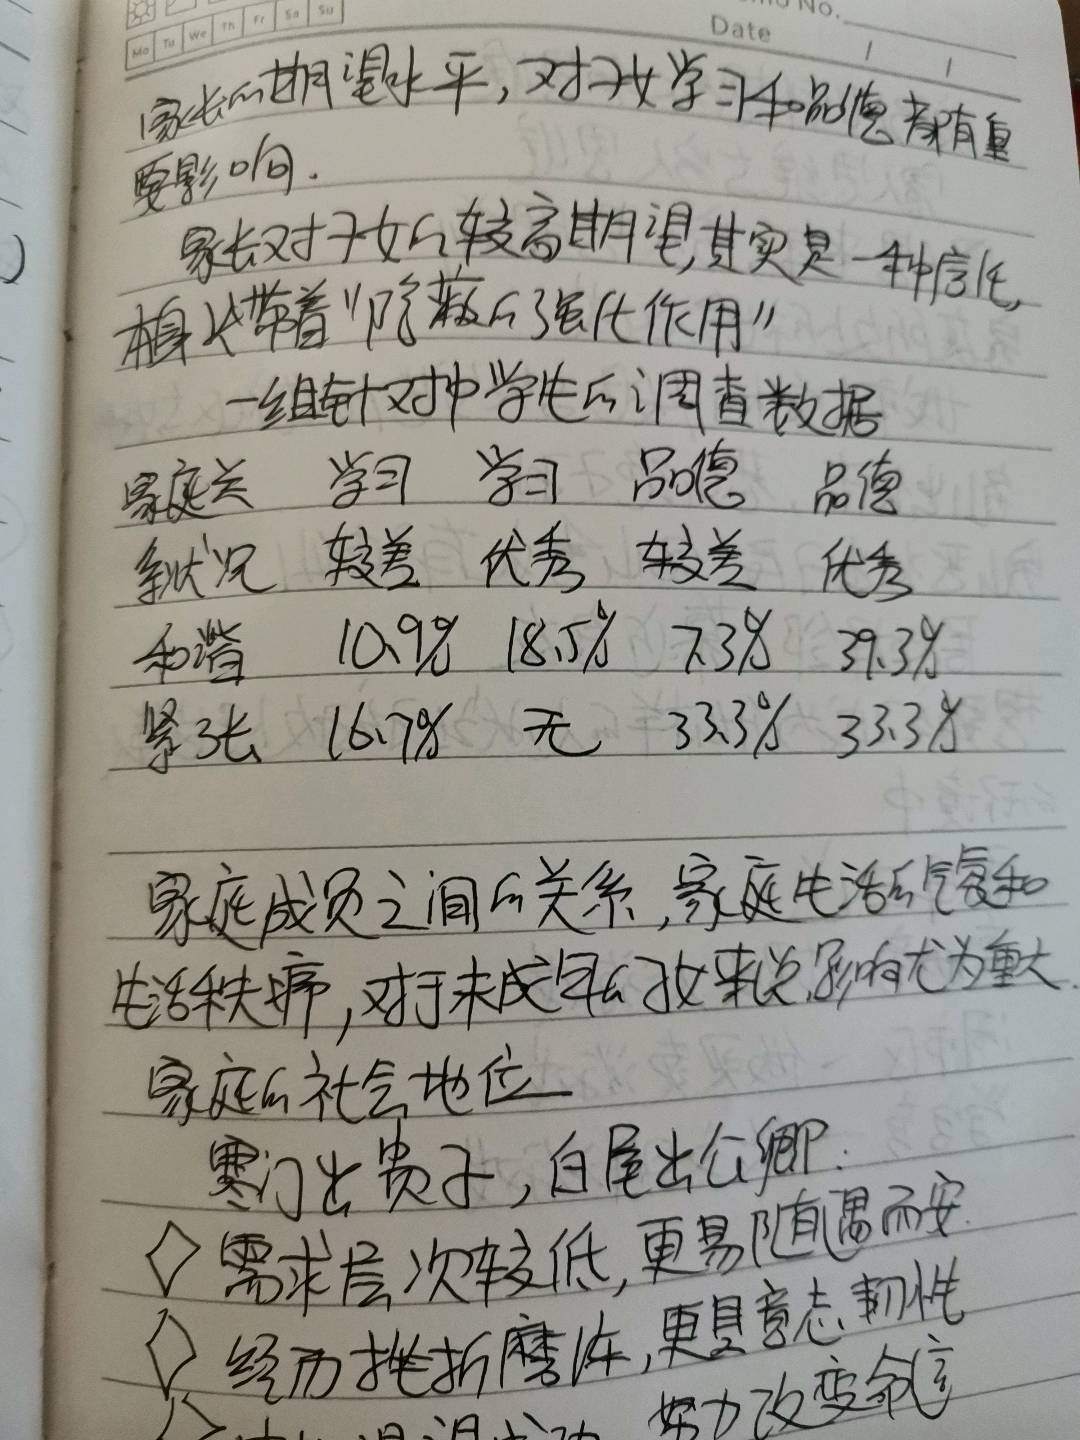 Mo Tu We Th Fr Sa Su
Memo No.
Date / /
家长的期望水平，对子女学习和品德都有重
要影响.
家长对子女的较高期望,其实是一种信任,
本身代带着"隐蔽的强化作用"
一组针对中学生的调查数据
家庭关 学习 学习 品德 品德
系状况 较差 优秀 较差 优秀
和谐 10.9% 18.5% 7.3% 39.3%
紧张 16.7% 无 33.3% 33.3%
家庭成员之间的关系,家庭生活的气氛和
生活秩序,对于未成年的子女来说,影响尤为重大.
家庭的社会地位
寒门出贵子,白屋出公卿.
◇需求层次较低,更易随遇而安.
◇经历挫折磨练,更具意志韧性
◇ 努力改变命运